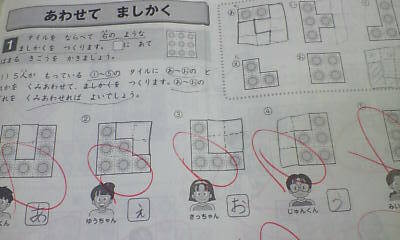 あわせて ましかく
1 タイルを ならべて 右の ような
ましかくを つくります。□に あて
はまる きごうを かきましょう。
5人が もっている ①〜⑤の タイルに あ〜おの ど
れかを くみあわせて、ましかくを つくります。あ〜おの
どれを くみあわせれば よいでしょう。
あ
う
え
お
② ③ ④
くん ゆうちゃん さっちゃん じゅんくん
あ え お う